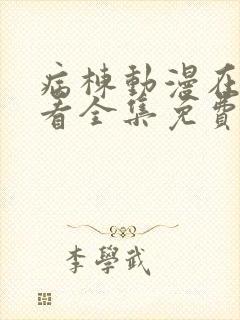 病棟動漫在
看全集免費
李學武